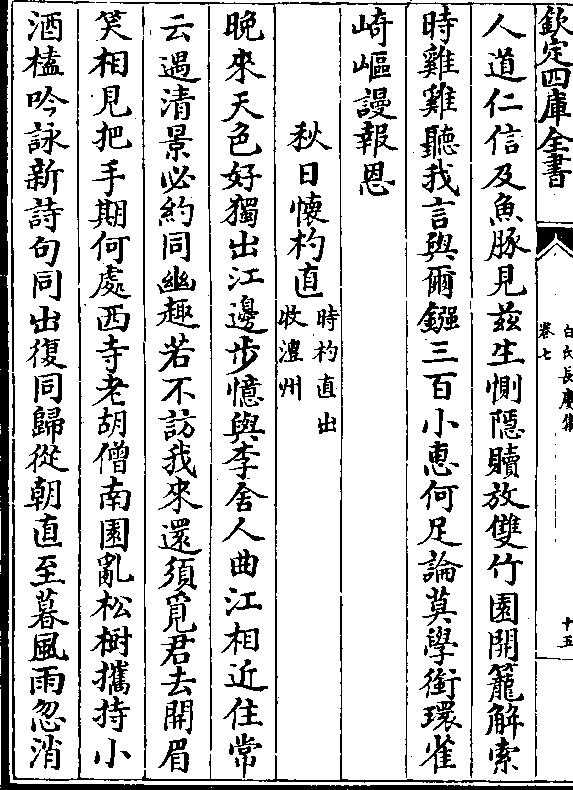 欽定四庫全書
白氏長慶集
卷七
十五
人道仁信及魚豚見兹生惻隱贖放雙竹園開籠解索
時雞雞聽我言與爾鏹三百小惠何足論莫學銜環雀
崎嶇謾報恩
秋日懷杓直
時杓直出
牧澧州
晚來天色好獨出江邊步憶與李舍人曲江相近住常
云遇清景必約同幽趣若不訪我來還須覓君去開眉
笑相見把手期何處西寺老胡僧南園亂松樹攜持小
酒榼吟詠新詩句同出復同歸從朝直至暮風雨忽消